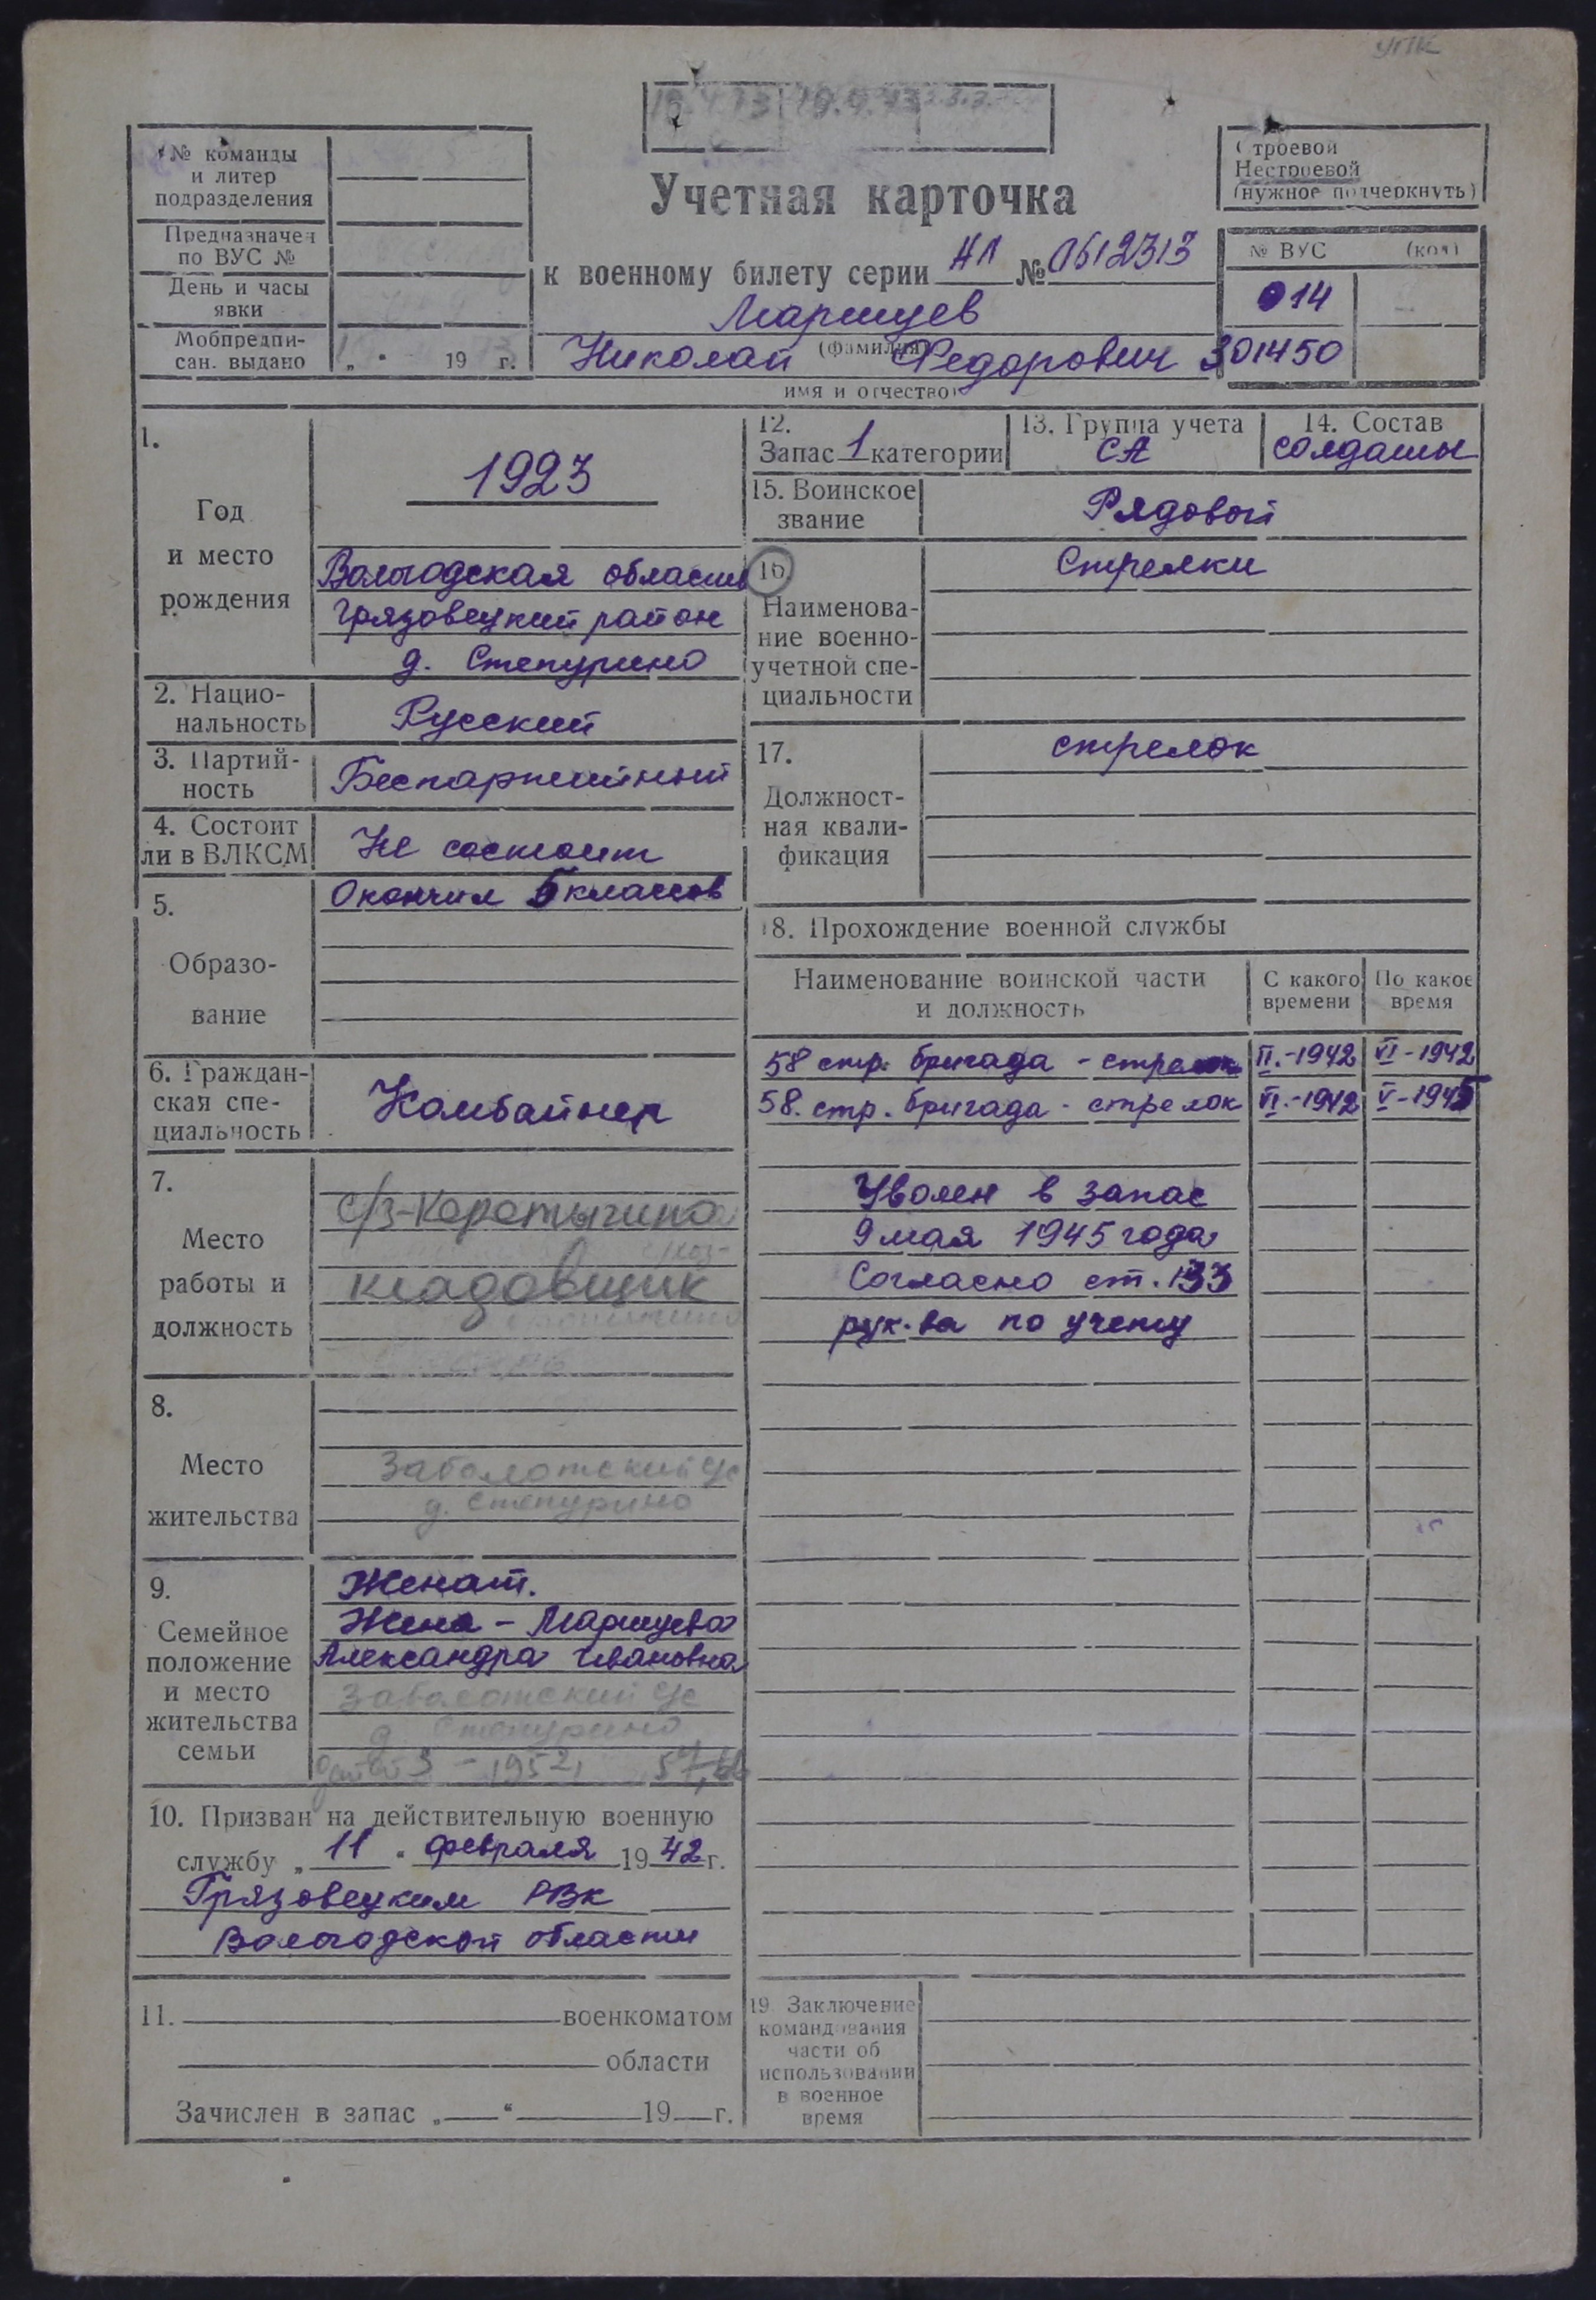 УПК
№ команды
и литер
подразделения
Предназначен
по ВУС №
День и часы
явки
Мобпредпи-
сан. выдано „ " 19 г.
Учетная карточка
к военному билету серии НЛ № 0612313
Маршуев
(фамилия)
Николай Федорович
имя и отчество
Строевой
Нестроевой
(нужное подчеркнуть)
№ ВУС (код)
014
301450
1.
Год
и место
рождения
1923
Вологодская область
Грязовецкий район
д. Степурино
2. Нацио-
нальность
Русский
3. Партий-
ность
Беспартийный
4. Состоит
ли в ВЛКСМ
Не состоит
5.
Образо-
вание
Окончил 5 классов
6. Граждан-
ская спе-
циальность
Комбайнер
7.
Место
работы и
должность
с/з-Коротыгино
кладовщик
8.
Место
жительства
Заболотский с/с
д. Степурино
9.
Семейное
положение
и место
жительства
семьи
Женат.
Жена - Маршуева
Александра Ивановна
Заболотский с/с
д. Степурино
10. Призван на действительную военную
службу „ 11 " февраля 1942 г.
Грязовецким РВК
Вологодской области
11. военкоматом
области
Зачислен в запас „ " 19 г.
12.
Запас 1 категории
13. Группа учета
СА
14. Состав
солдаты
15. Воинское
звание
Рядовой
16.
Наименова-
ние военно-
учетной спе-
циальности
Стрелки
17.
Должност-
ная квали-
фикация
стрелок
18. Прохождение военной службы
Наименование воинской части
и должность
С какого
времени
По какое
время
58 стр. бригада - стрелок II.-1942 VI-1942
58. стр. бригада - стрелок VI.-1942 V-1945
Уволен в запас
9 мая 1945 года
Согласно ст. 133
рук-ва по учету
19 Заключение
командования
части об
использовании
в военное
время